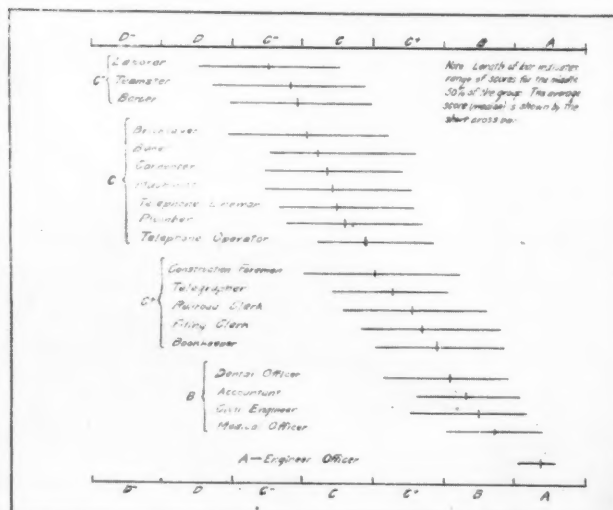 D- D C- C C+ B A
Note. Length of bar indicates
range of scores for the middle
50% of the group. The average
score (median) is shown by the
short cross bar.
C- { Laborer
Teamster
Barber
Bricklayer
Baker
Carpenter
C { Machinist
Telephone Lineman
Plumber
Telephone Operator
Construction Foreman
Telegrapher
C+ { Railroad Clerk
Filing Clerk
Bookkeeper
Dental Officer
B { Accountant
Civil Engineer
Medical Officer
A—Engineer Officer
D- D C- C C+ B A